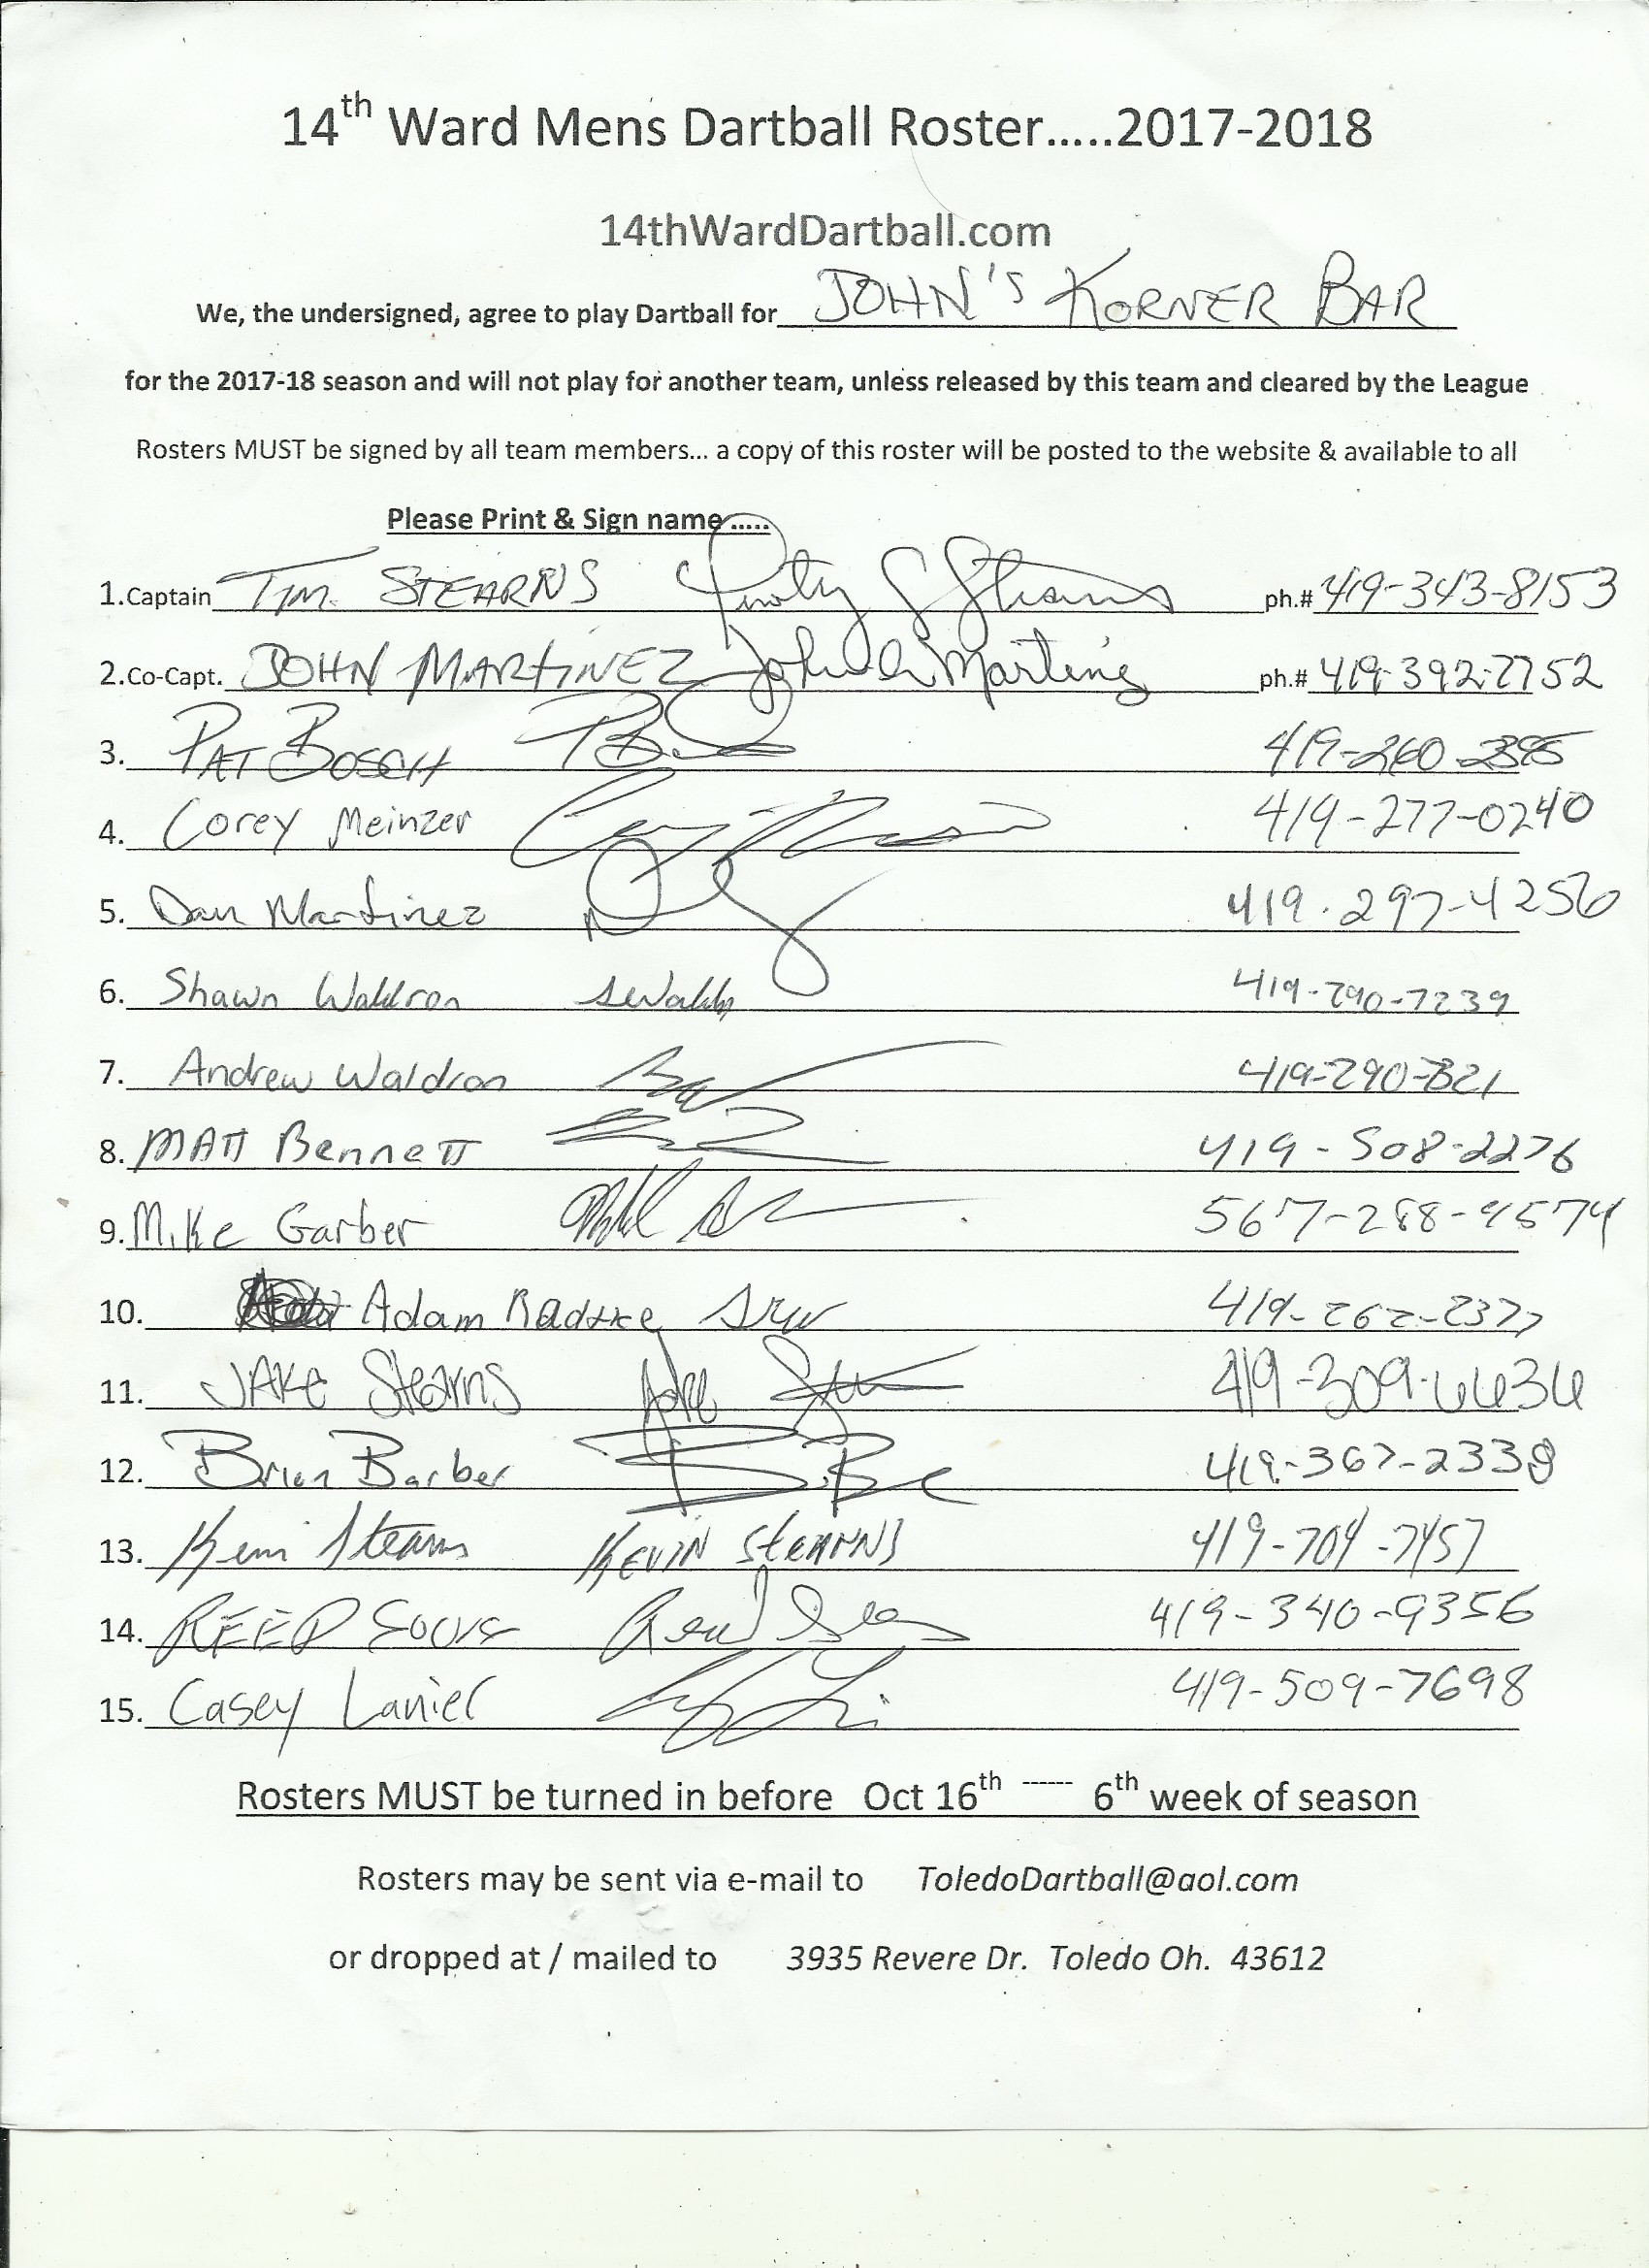 14th Ward Mens Dartball Roster.....2017-2018
14thWardDartball.com
We, the undersigned, agree to play Dartball for JOHN'S KORNER BAR
for the 2017-18 season and will not play for another team, unless released by this team and cleared by the League
Rosters MUST be signed by all team members... a copy of this roster will be posted to the website & available to all
Please Print & Sign name.....
1.Captain TIM STEARNS ph.# 419-343-8153
2.Co-Capt. JOHN MARTINEZ John Martinez ph.# 419-392-7752
3. PAT BOSCH 419-260-
4. Corey Meinzer 419-277-0240
5. Dan Martinez 419-297-4256
6. Shawn Waldron 419-290-7239
7. Andrew Waldron
8. MATT Bennett 419-508-2276
9. Mike Garber 567-288-4574
10. Adam Radtke 419-262-2377
11. JAKe Stearns Jake 419-309-6636
12. Brian Barber 419-367-2338
13. Kevin Stearns KEVIN STEARNS 419-704-7457
14. REED 419-340-9356
15. Casey Lanier 419-509-7698
Rosters MUST be turned in before Oct 16th ------ 6th week of season
Rosters may be sent via e-mail to ToledoDartball@aol.com
or dropped at / mailed to 3935 Revere Dr. Toledo Oh. 43612